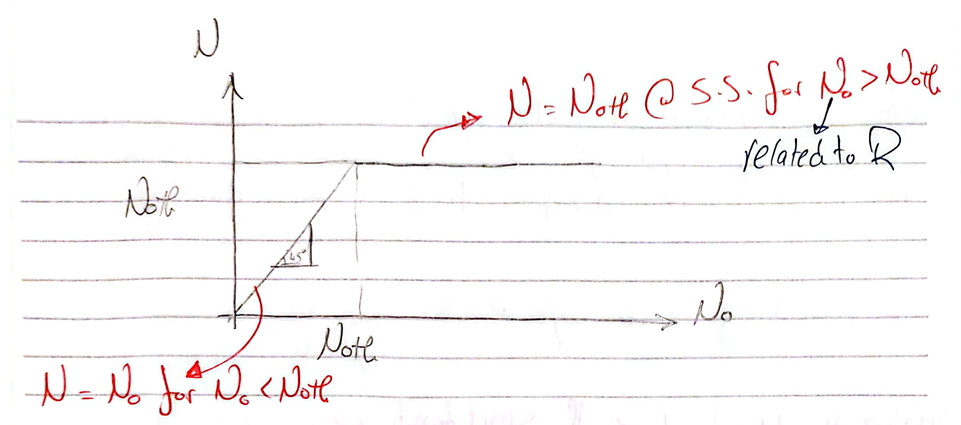 N
N = Noth @ S.S. for No > Noth
related to R
Noth
45°
No
Noth
N = No for No < Noth